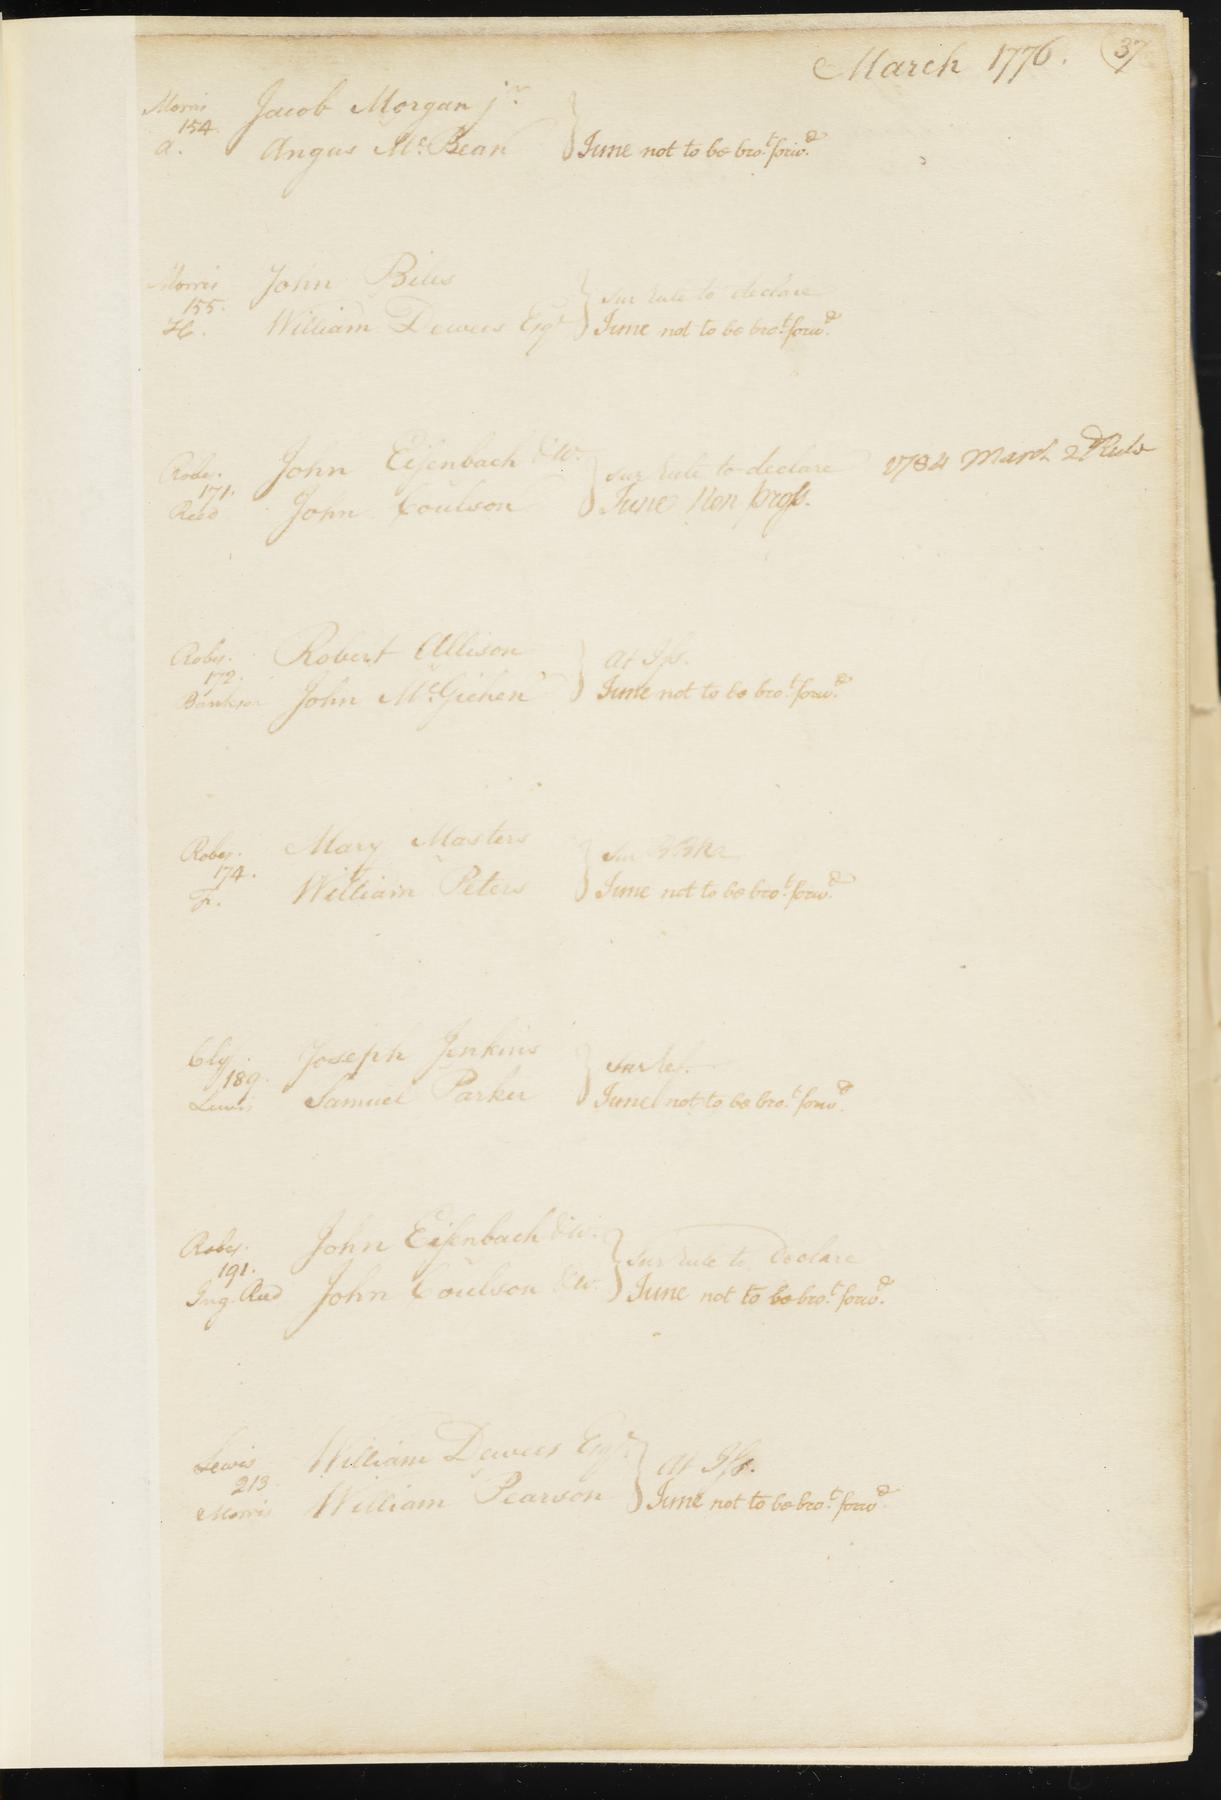 March 1776. 37
Morris Jacob Morgan jr.
154.
a. Angus McBean } June not to be brot. forwd.
Morris John Biles sur rule to declare
155.
H. William Dewees Esqr } June not to be brot. forwd.
Robts. John Eisenbach & W. sur rule to declare 1784 March 2d Rule
171.
Reed John Coulson } June Non pross.
Robts. Robert Allison At Iss.
172.
Bankson John McGichen } June not to be brot. forwd.
Robts. Mary Masters sur
174.
F. William Peters } June not to be brot. forwd.
Cly. Joseph Jenkins sur Ref.
189.
Lewis Samuel Parker } June not to be brot. forwd.
Robts. John Eisenbach & W. sur rule to declare
191.
Ing. Reed John Coulson & W. } June not to be brot. forwd.
Lewis William Dewees Esqr At Iss.
213
Morris William Pearson } June not to be brot. forwd.